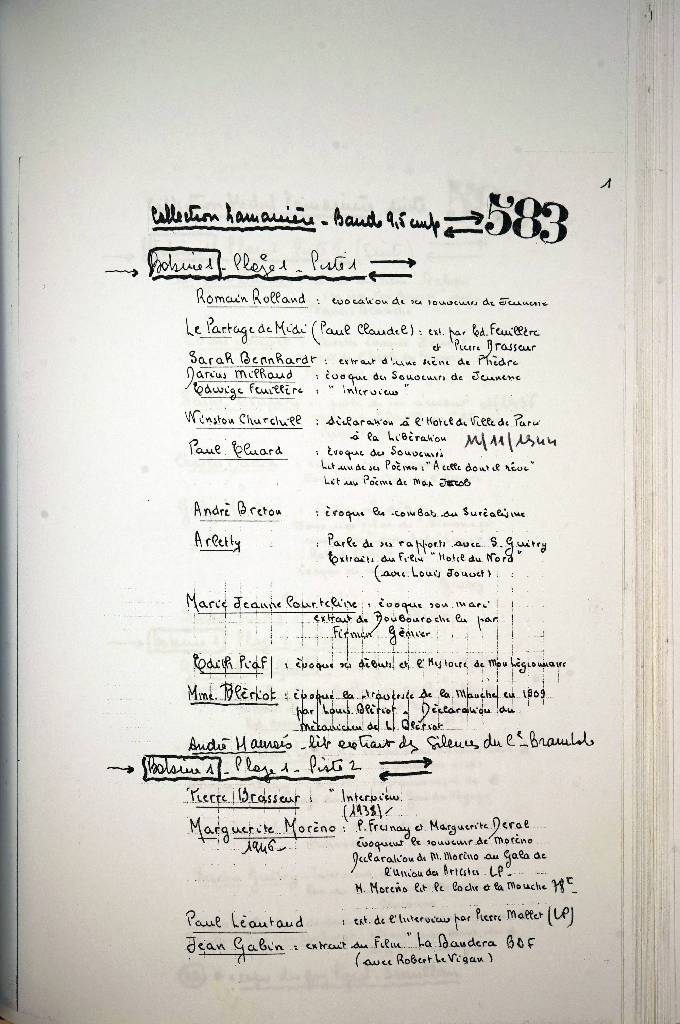 1
Collection Lamanière - Bande 9,5 cm/s 583
Bobine 1 - Plage 1 - Piste 1
Romain Rolland : évocation de ses souvenirs de Jeunesse
Le Partage de Midi (Paul Claudel) : ext. par Ed. Feuillère
et Pierre Brasseur
Sarah Bernhardt : extrait d'une scène de Phèdre
Darius Milhaud : évoque des Souvenirs de Jeunesse
Edwige Feuillère : " Interview "
Winston Churchill : Déclaration à l'Hotel de Ville de Paris
à la Libération 11/11/1944
Paul Eluard : évoque des Souvenirs
Lit un de ses Poèmes : "A celle dont il rêve"
Lit un Poème de Max Jacob
André Breton : évoque les combats du Suréalisme
Arletty : Parle de ses rapports avec S. Guitry
Extraits du Film "Hotel du Nord"
(avec Louis Jouvet)
Marie Jeanne Courteline : évoque son mari
extrait de Boubouroche lu par
Firmin Gémier
Edith Piaf : évoque ses débuts et l'Histoire de Mon Légionnaire
Mme. Blériot : évoque la traversée de la Manche en 1909
par Louis Blériot - Déclaration du
mécanicien de L. Blériot
André Maurois - lit extrait des Silences du Cel Bramble
Bobine 1 - Plage 1 - Piste 2
Pierre Brasseur : " Interview
(1938)
Marguerite Moréno : P. Fresnay et Marguerite Deval
1946 - évoquent le souvenir de Moréno
Declaration de M. Moréno au Gala de
l'Union des Artistes LP -
M. Moreño lit le coche et la Mouche 78T -
Paul Léautaud : ext. de l'Interview par Pierre Mallet (LP)
Jean Gabin : extrait du Film " La Bandera BOF
(avec Robert Le Vigan)